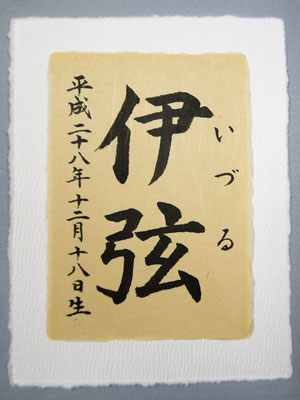 いづる
伊弦
平成二十八年十二月十八日生